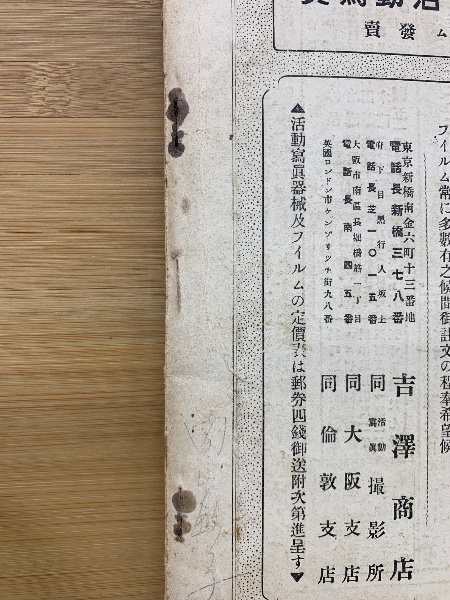 賣發ム
フイルム常に多數有之候間御註文の程奉希望候
東京新橋南金六町十三番地
電話長新橋三七八番
吉澤商店
府下目黑行人坂上
電話長芝一〇一五番
同活動寫眞撮影所
大阪市南區長堀橋筋一丁目
電話長南四五番
同大阪支店
英國ロンドン市ケンブリッヂ街九八番
同倫敦支店
▲活動寫眞器械及フイルムの定價表は郵券四錢御送附次第進呈す▼